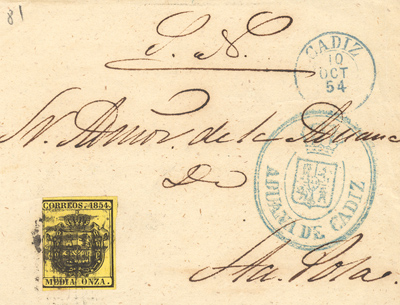 18
S. N.
CADIZ
10
OCT
54
Sr. Admor. de la Aduana
De
ADUANA DE CADIZ
CORREOS. 1854.
MEDIA ONZA.
Sta. Pola.